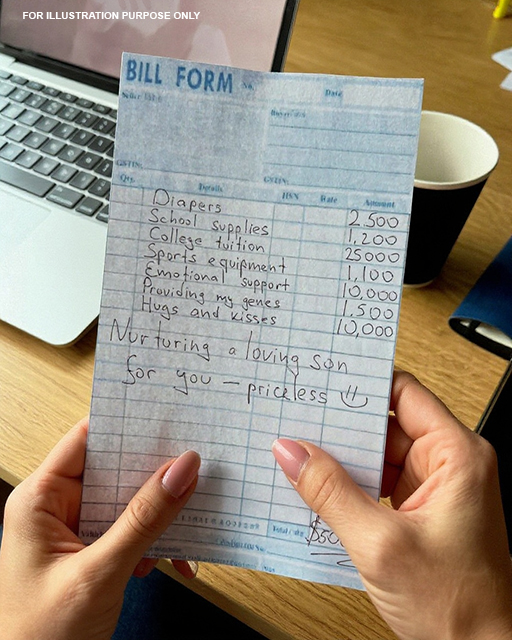 FOR ILLUSTRATION PURPOSE ONLY
BILL FORM No.
Date
GSTIN:
Qty. Details HSN Rate Amount
Diapers 2,500
School supplies 1,200
College tuition 25000
Sports equipment 1,100
Emotional support 10,000
Providing my genes 1,500
Hugs and kisses 10,000
Nurturing a loving son
for you – priceless
Total